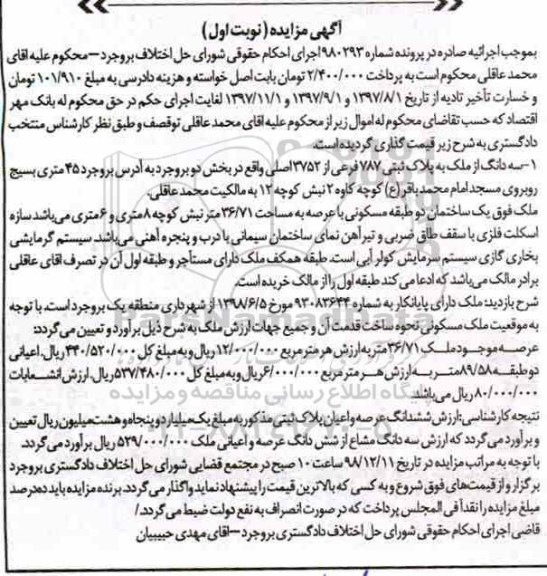 آگهی مزایده (نوبت اول)
بموجب اجرائیه صادره در پرونده شماره ۹۸۰۲۹۳ اجرای احکام حقوقی شورای حل اختلاف بروجرد – محکوم علیه اقای
محمد عاقلی محکوم است به پرداخت ۲/۴۰۰/۰۰۰ تومان بابت اصل خواسته و هزینه دادرسی به مبلغ ۱۰۱/۹۱۰ تومان
و خسارت تأخیر تادیه از تاریخ ۱۳۹۷/۸/۱ و ۱۳۹۷/۹/۱ و ۱۳۹۷/۱۱/۱ لغایت اجرای حکم در حق محکوم له بانک مهر
اقتصاد که حسب تقاضای محکوم له اموال زیر از محکوم علیه اقای محمد عاقلی توقصف و طبق نظر کارشناس منتخب
دادگستری به شرح زیر قیمت گذاری گردیده است.
۱-سه دانگ از ملک به پلاک ثبتی ۷۸۷ فرعی از ۳۷۵۲ اصلی واقع در بخش دو بروجرد به آدرس بروجرد ۴۵ متری بسیج
روبروی مسجد امام محمد باقر (ع) کوچه کاوه ۲ نبش کوچه ۱۲ به مالکیت محمد عاقلی.
ملک فوق یک ساختمان دو طبقه مسکونی با عرصه به مساحت ۳۶/۷۱ متر نبش کوچه ۸ متری و ۶ متری می باشد سازه
اسکلت فلزی با سقف طاق ضربی و تیر آهن نمای ساختمان سیمانی با درب و پنجره آهنی می باشد. سیستم گرمایشی
بخاری گازی سیستم سرمایش کولر آبی است. طبقه همکف ملک دارای مستأجر و طبقه اول آن در تصرف اقای عاقلی
برادر مالک می باشد که ادعا می کند طبقه اول را از مالک خریده است.
شرح بازدید: ملک دارای پایانکار به شماره ۹۳۰۸۳۶۴۴ مورخ ۱۳۹۸/۶/۵ از شهرداری منطقه یک بروجرد است. با توجه
به موقعیت ملک مسکونی نحوه ساخت قدمت آن و جمیع جهات ارزش ملک به شرح ذیل برآورد و تعیین می گردد:
عرصه موجود ملک ۳۶/۷۱ متر به ارزش هر متر مربع ۱۲/۰۰۰/۰۰۰ ریال و به مبلغ کل ۴۴۰/۵۲۰/۰۰۰ ریال. اعیانی
دو طبقه ۸۹/۵۸ متر به ارزش هر متر مربع ۶/۰۰۰/۰۰۰ ریال و به مبلغ کل ۵۳۷/۴۸۰/۰۰۰ ریال. ارزش انشعابات
۸۰/۰۰۰/۰۰۰ ریال می باشد.
نتیجه کارشناسی: ارزش ششدانگ عرصه و اعیان پلاک ثبتی مذکور به مبلغ یک میلیارد و پنجاه و هشت میلیون ریال تعیین
و برآورد می گردد که ارزش سه دانگ مشاع از شش دانگ عرصه و اعیانی ملک ۵۲۹/۰۰۰/۰۰۰ ریال برآورد می گردد.
با توجه به مراتب مزایده در تاریخ ۹۸/۱۲/۱۱ ساعت ۱۰ صبح در مجتمع قضایی شورای حل اختلاف دادگستری بروجرد
برگزار و از قیمت های فوق شروع و به کسی که بالاترین قیمت را پیشنهاد نماید واگذار می گردد. برنده مزایده باید ده درصد
مبلغ مزایده را نقدا فی المجلس پرداخت که در صورت انصراف به نفع دولت ضبط می گردد./
قاضی اجرای احکام حقوقی شورای حل اختلاف دادگستری بروجرد – اقای مهدی حبیبیان